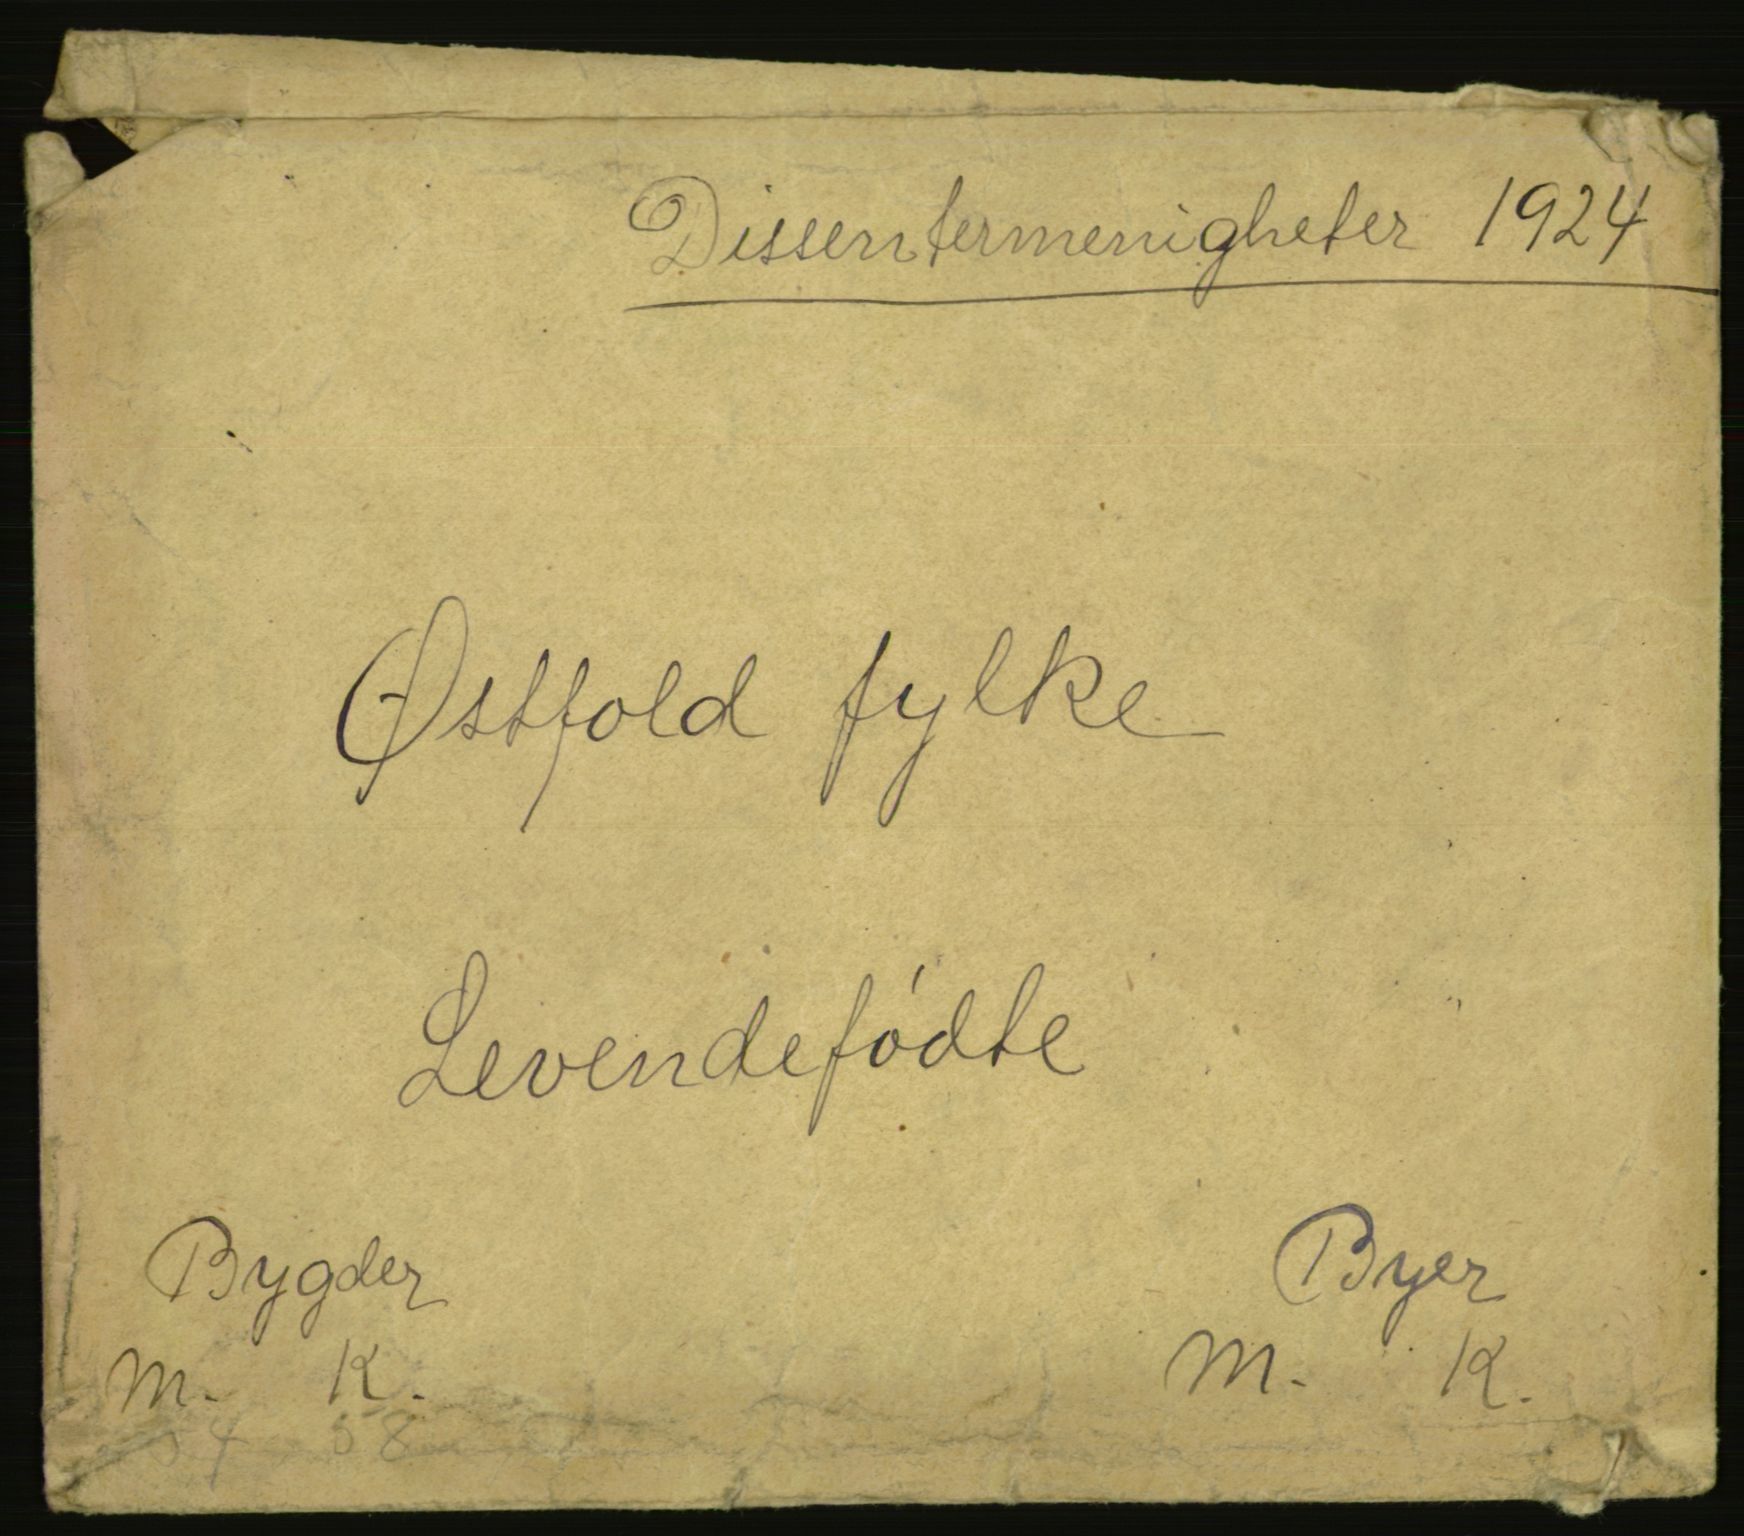 Dissentermenigheter 1924
Østfold fylke
Levendefódte
Bygder Byer
M. K. M. K.
54 58